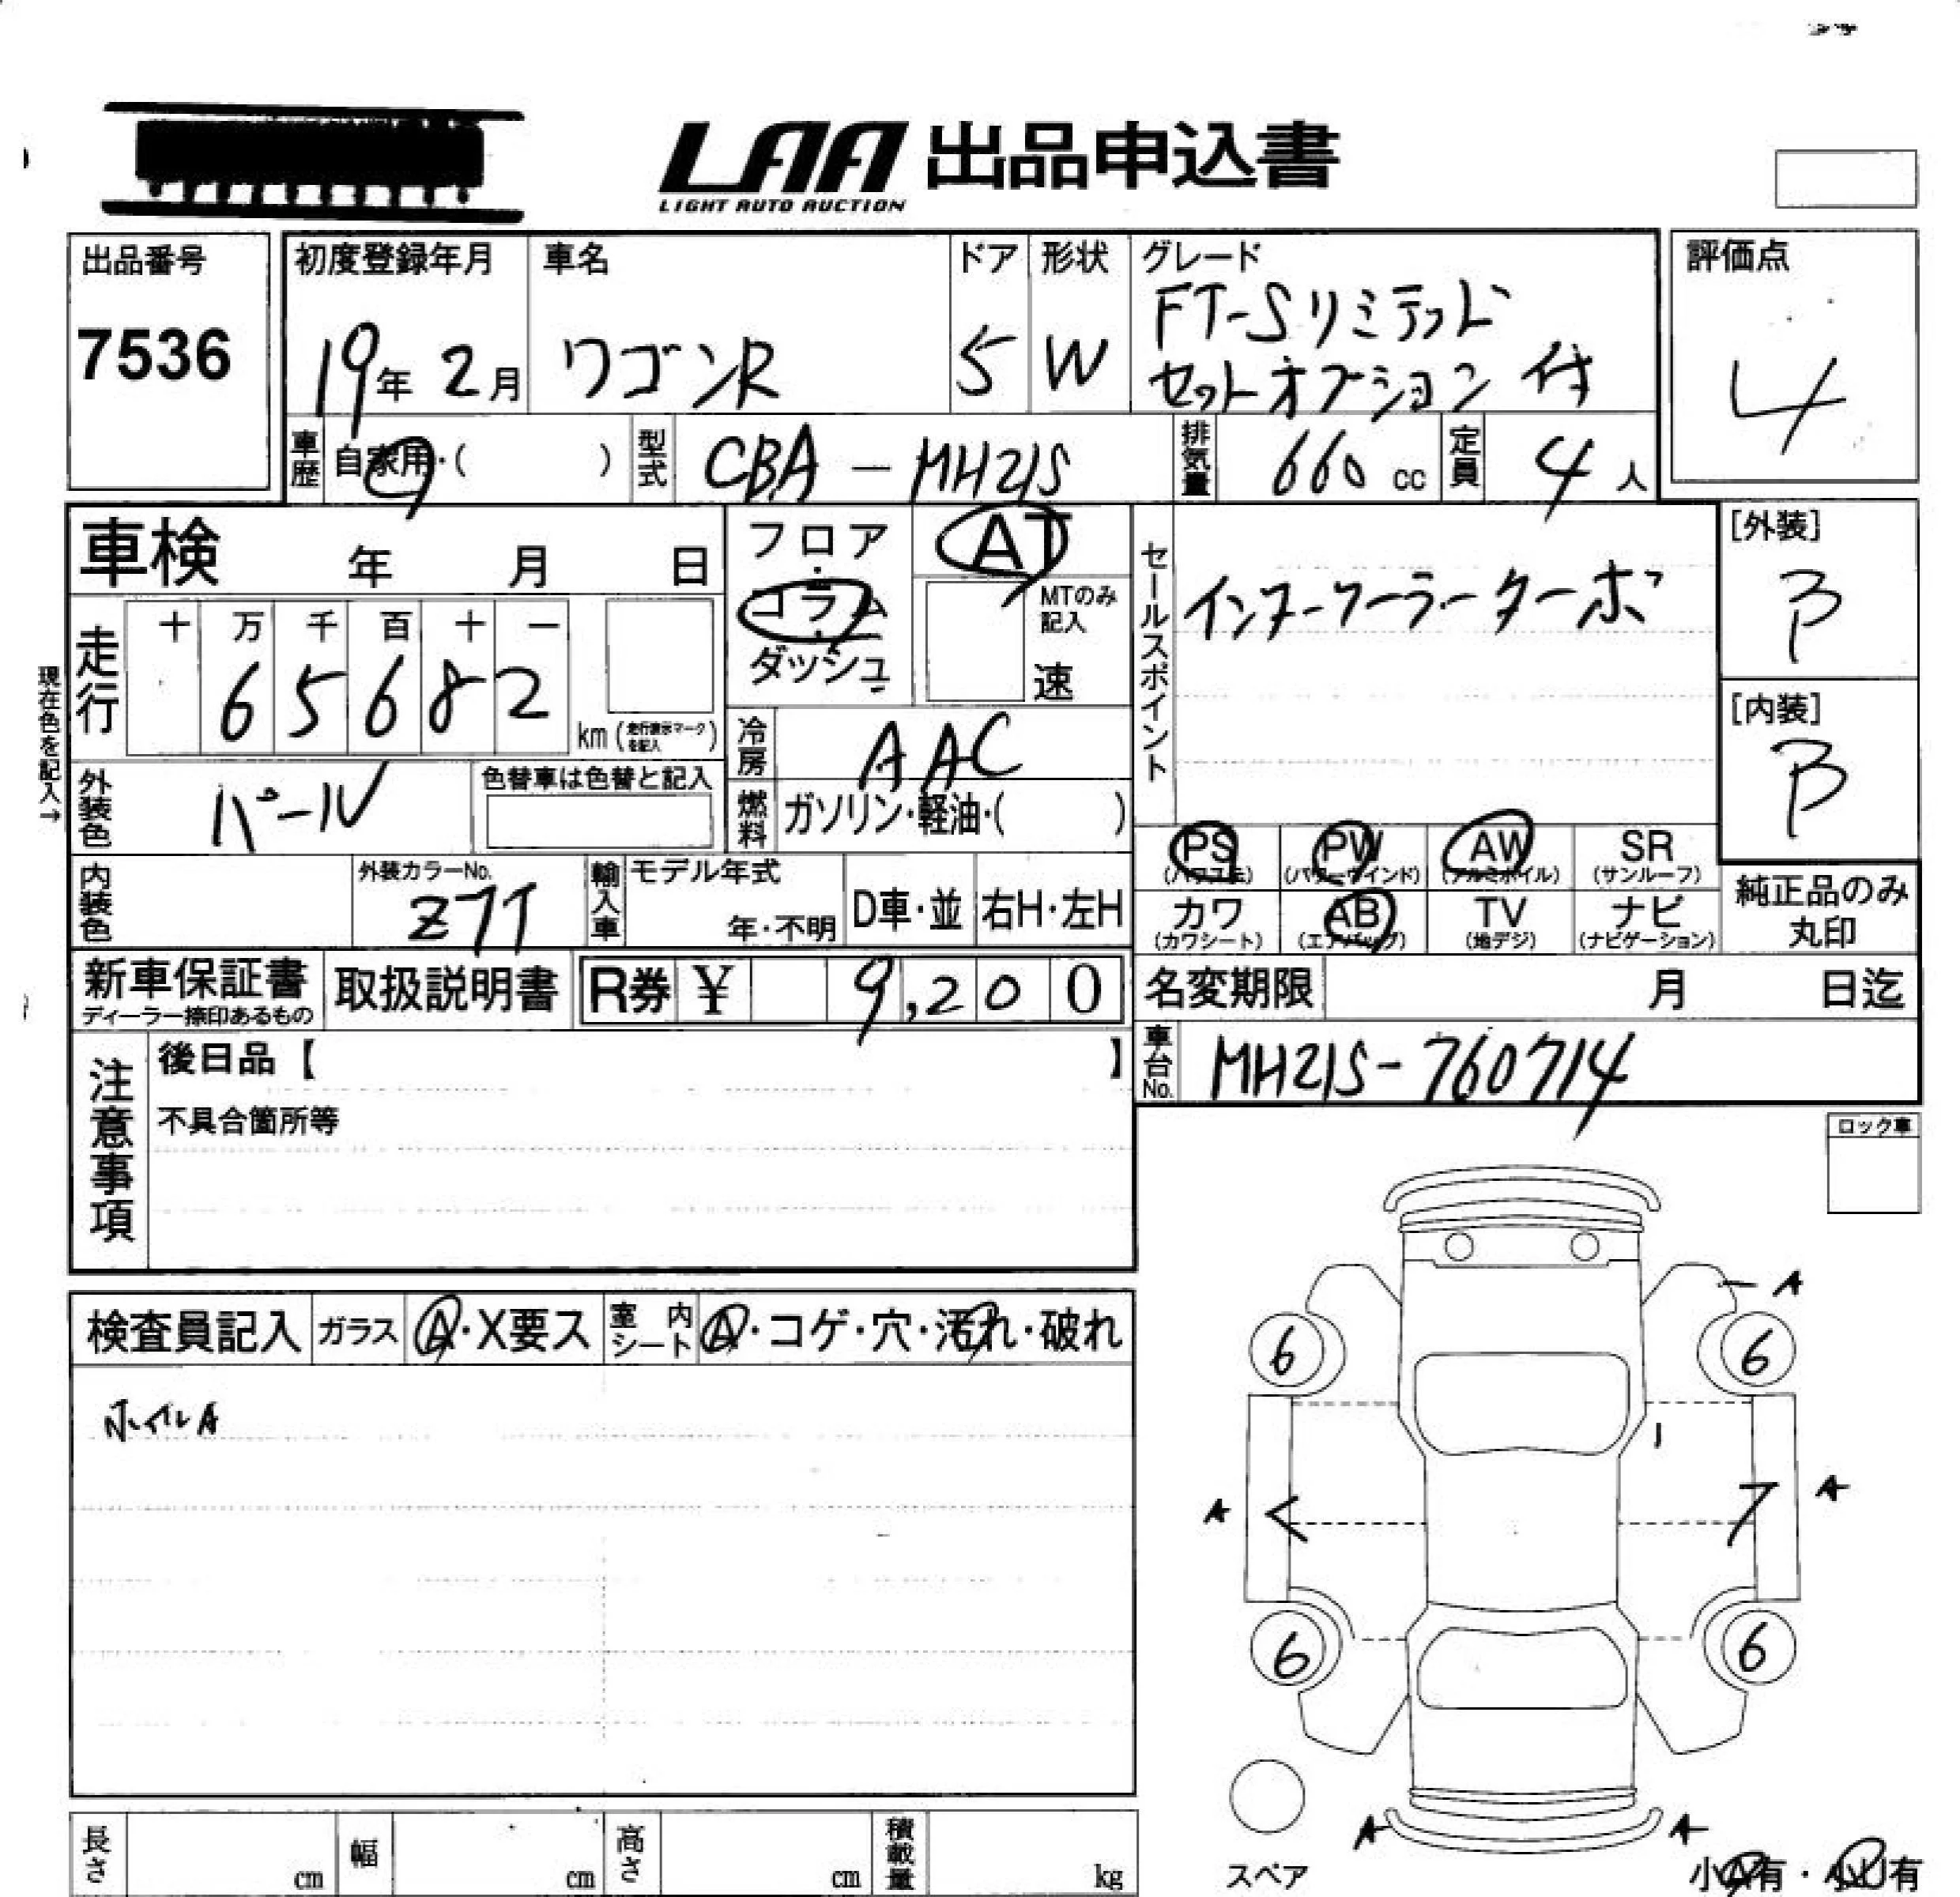 LAA 出品申込書
LIGHT AUTO AUCTION
出品番号
7536
初度登録年月
19年 2月
車名
ワゴンR
ドア
5
形状
W
グレード
FT-Sリミテッド
セットオプション付
評価点
4
車歴
自家用・( )
型式
CBA-MH21S
排気量
660 cc
定員
4人
車検 年 月 日
フロア・コラム・ダッシュ
AT
MTのみ記入
速
セールスポイント
インタークーラーターボ
[外装]
B
[内装]
B
現在色を記入→
走行
十 万 千 百 十 一
6 5 6 8 2
km (走行表示マークを記入)
冷房
AAC
燃料
ガソリン・軽油・( )
外装色
パール
色替車は色替と記入
内装色
外装カラーNo.
Z7T
輸入車
モデル年式
年・不明
D車・並
右H・左H
PS
(パワステ)
PW
(パワーウインド)
AW
(アルミホイル)
SR
(サンルーフ)
カワ
(カワシート)
AB
(エアバッグ)
TV
(地デジ)
ナビ
(ナビゲーション)
純正品のみ
丸印
新車保証書
ディーラー捺印あるもの
取扱説明書
R券 ¥ 9,200
名変期限 月 日迄
車台No.
MH21S-760714
注意事項
後日品【 】
不具合箇所等
ロック車
検査員記入
ガラス
A・X要ス
室内シート
A・コゲ・穴・汚れ・破れ
ホイルA
A
6
6
A
A
6
6
A
A
スペア
小A有・小U有
長さ cm
幅 cm
高さ cm
積載量 kg